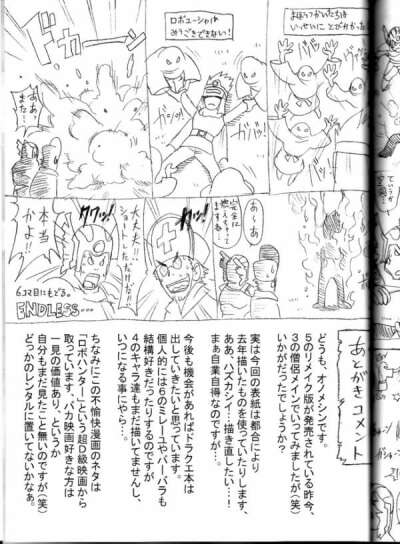 まほうつかいたちは
いっせいに とびかかった!
ガバッ
ロボユーシャは
みうごきできない!
ガシッ
ドカーン
ああ、
また…
あーあ
完全に
燃えちゃって
ますね
大丈夫!!
ショートしただけだ!!
クワッ!
クワッ!
本当
かよ!!
6コマ目にもどる。
ENDLESS…
あとがきコメント
どうも、オノメシンです。
5のリメイク版が発売されている昨今、
3の僧侶メインでいってみましたが(笑)
いかがだったでしょうか?
実は今回の表紙は都合により
去年描いたものを使っていたりします、
ああ、ハズカシイ…描き直したい…!
まぁ自業自得なのですが…。
今後も機会があればドラクエ本は
出していきたいと思っています。
個人的には6のミレーユやバーバラも
結構好きだったりするのですが
4のキャラ達もまだ描いてませんし、
いつになる事にやら…。
ちなみにこの不愉快漫画のネタは
「ロボハンター」という超D級映画から
取っています、バカ映画好きな方は
一見の価値あり、というか
自分もまだ見たこと無いのですが(笑)
どっかのレンタルに置いてないかなぁ。